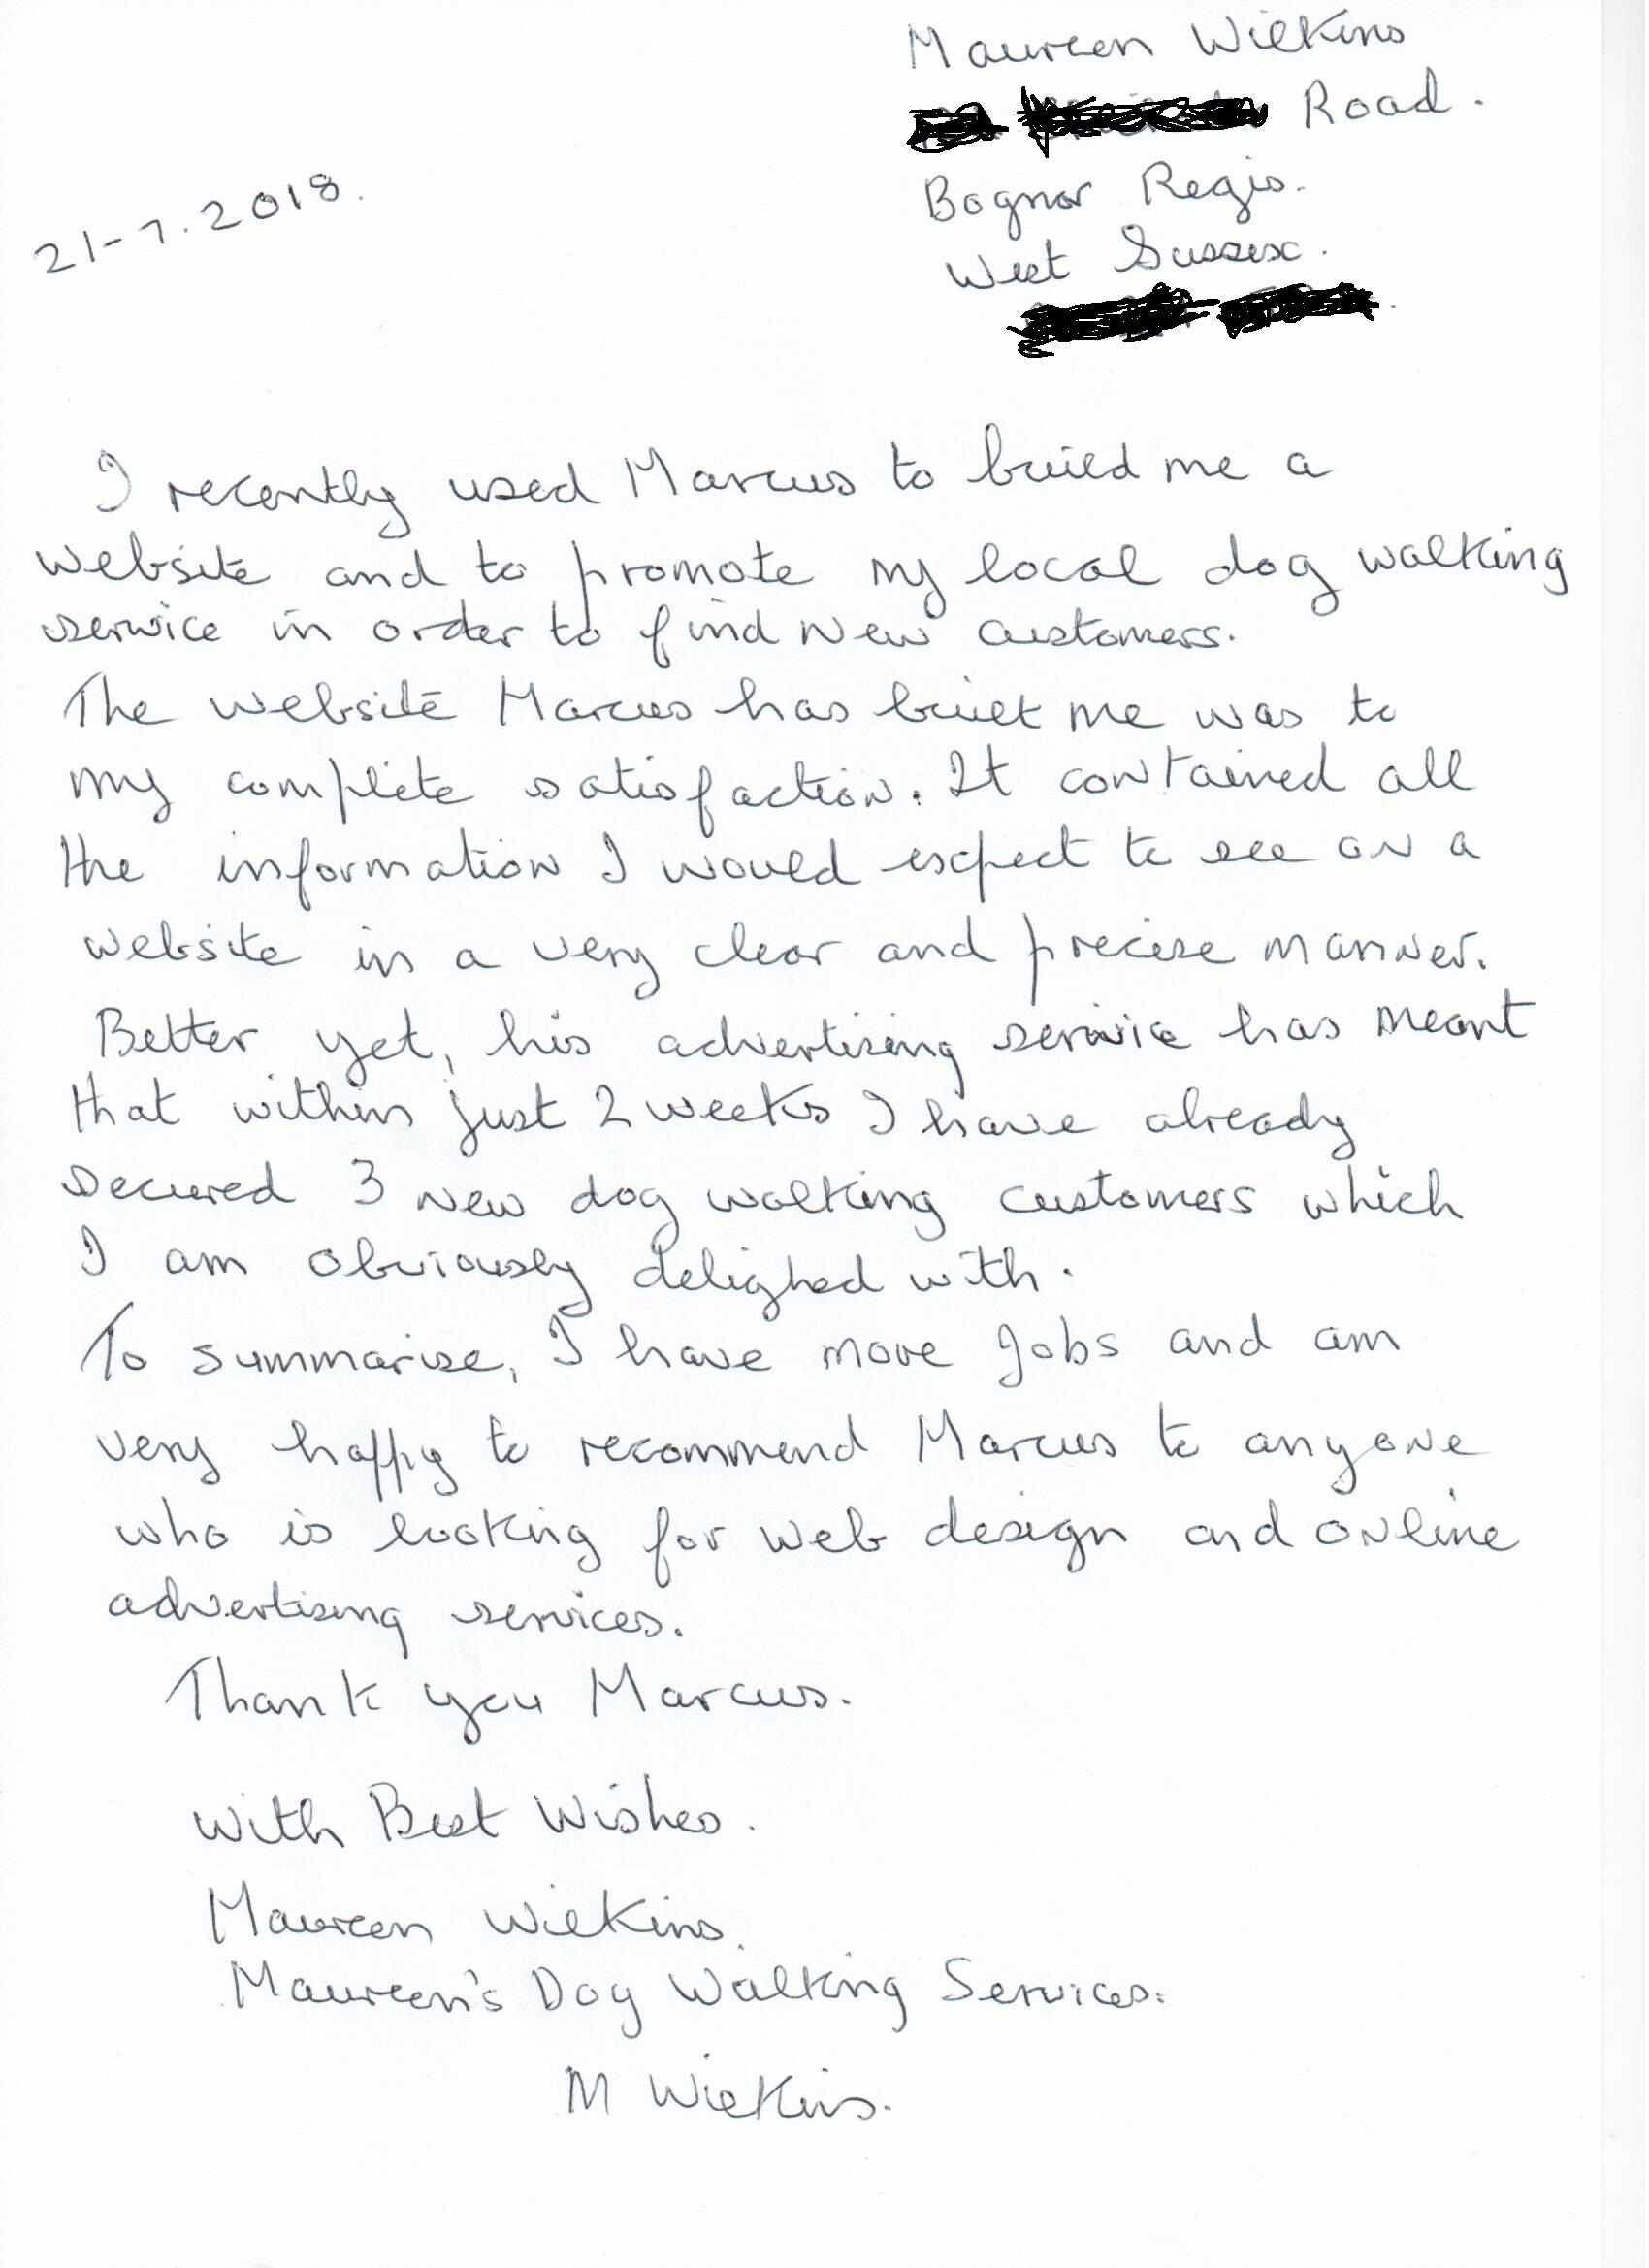 Maureen Wilkins
Road.
Bognor Regis.
West Sussex.
21-7.2018.
I recently used Marcus to build me a
website and to promote my local dog walking
service in order to find new customers.
The website Marcus has built me was to
my complete satisfaction. It contained all
the information I would expect to see on a
website in a very clear and precise manner.
Better yet, his advertising service has meant
that within just 2 weeks I have already
secured 3 new dog walking customers which
I am obviously delighed with.
To summarise, I have more jobs and am
very happy to recommend Marcus to anyone
who is looking for web design and online
advertising services.
Thank you Marcus.
With Best Wishes.
Maureen Wilkins.
Maureen's Dog Walking Services.
M Wilkins.